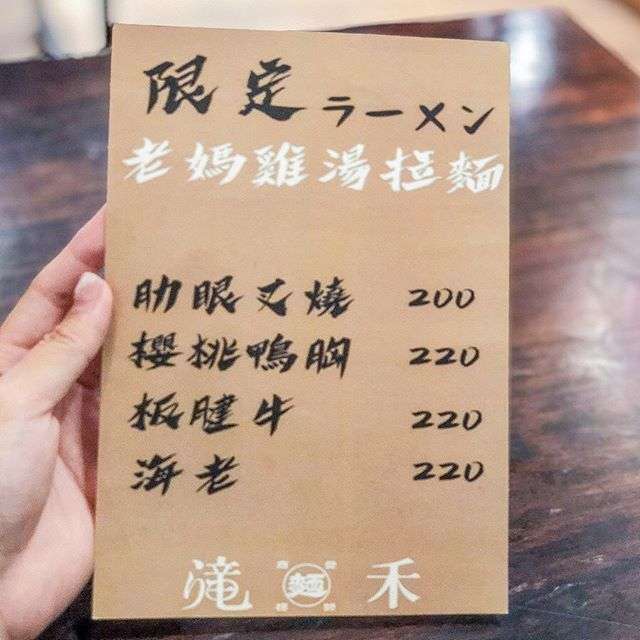 限定ラーメン
老媽雞湯拉麵
肋眼叉燒 200
櫻桃鴨胸 220
板腱牛 220
海老 220
滝 麵 禾